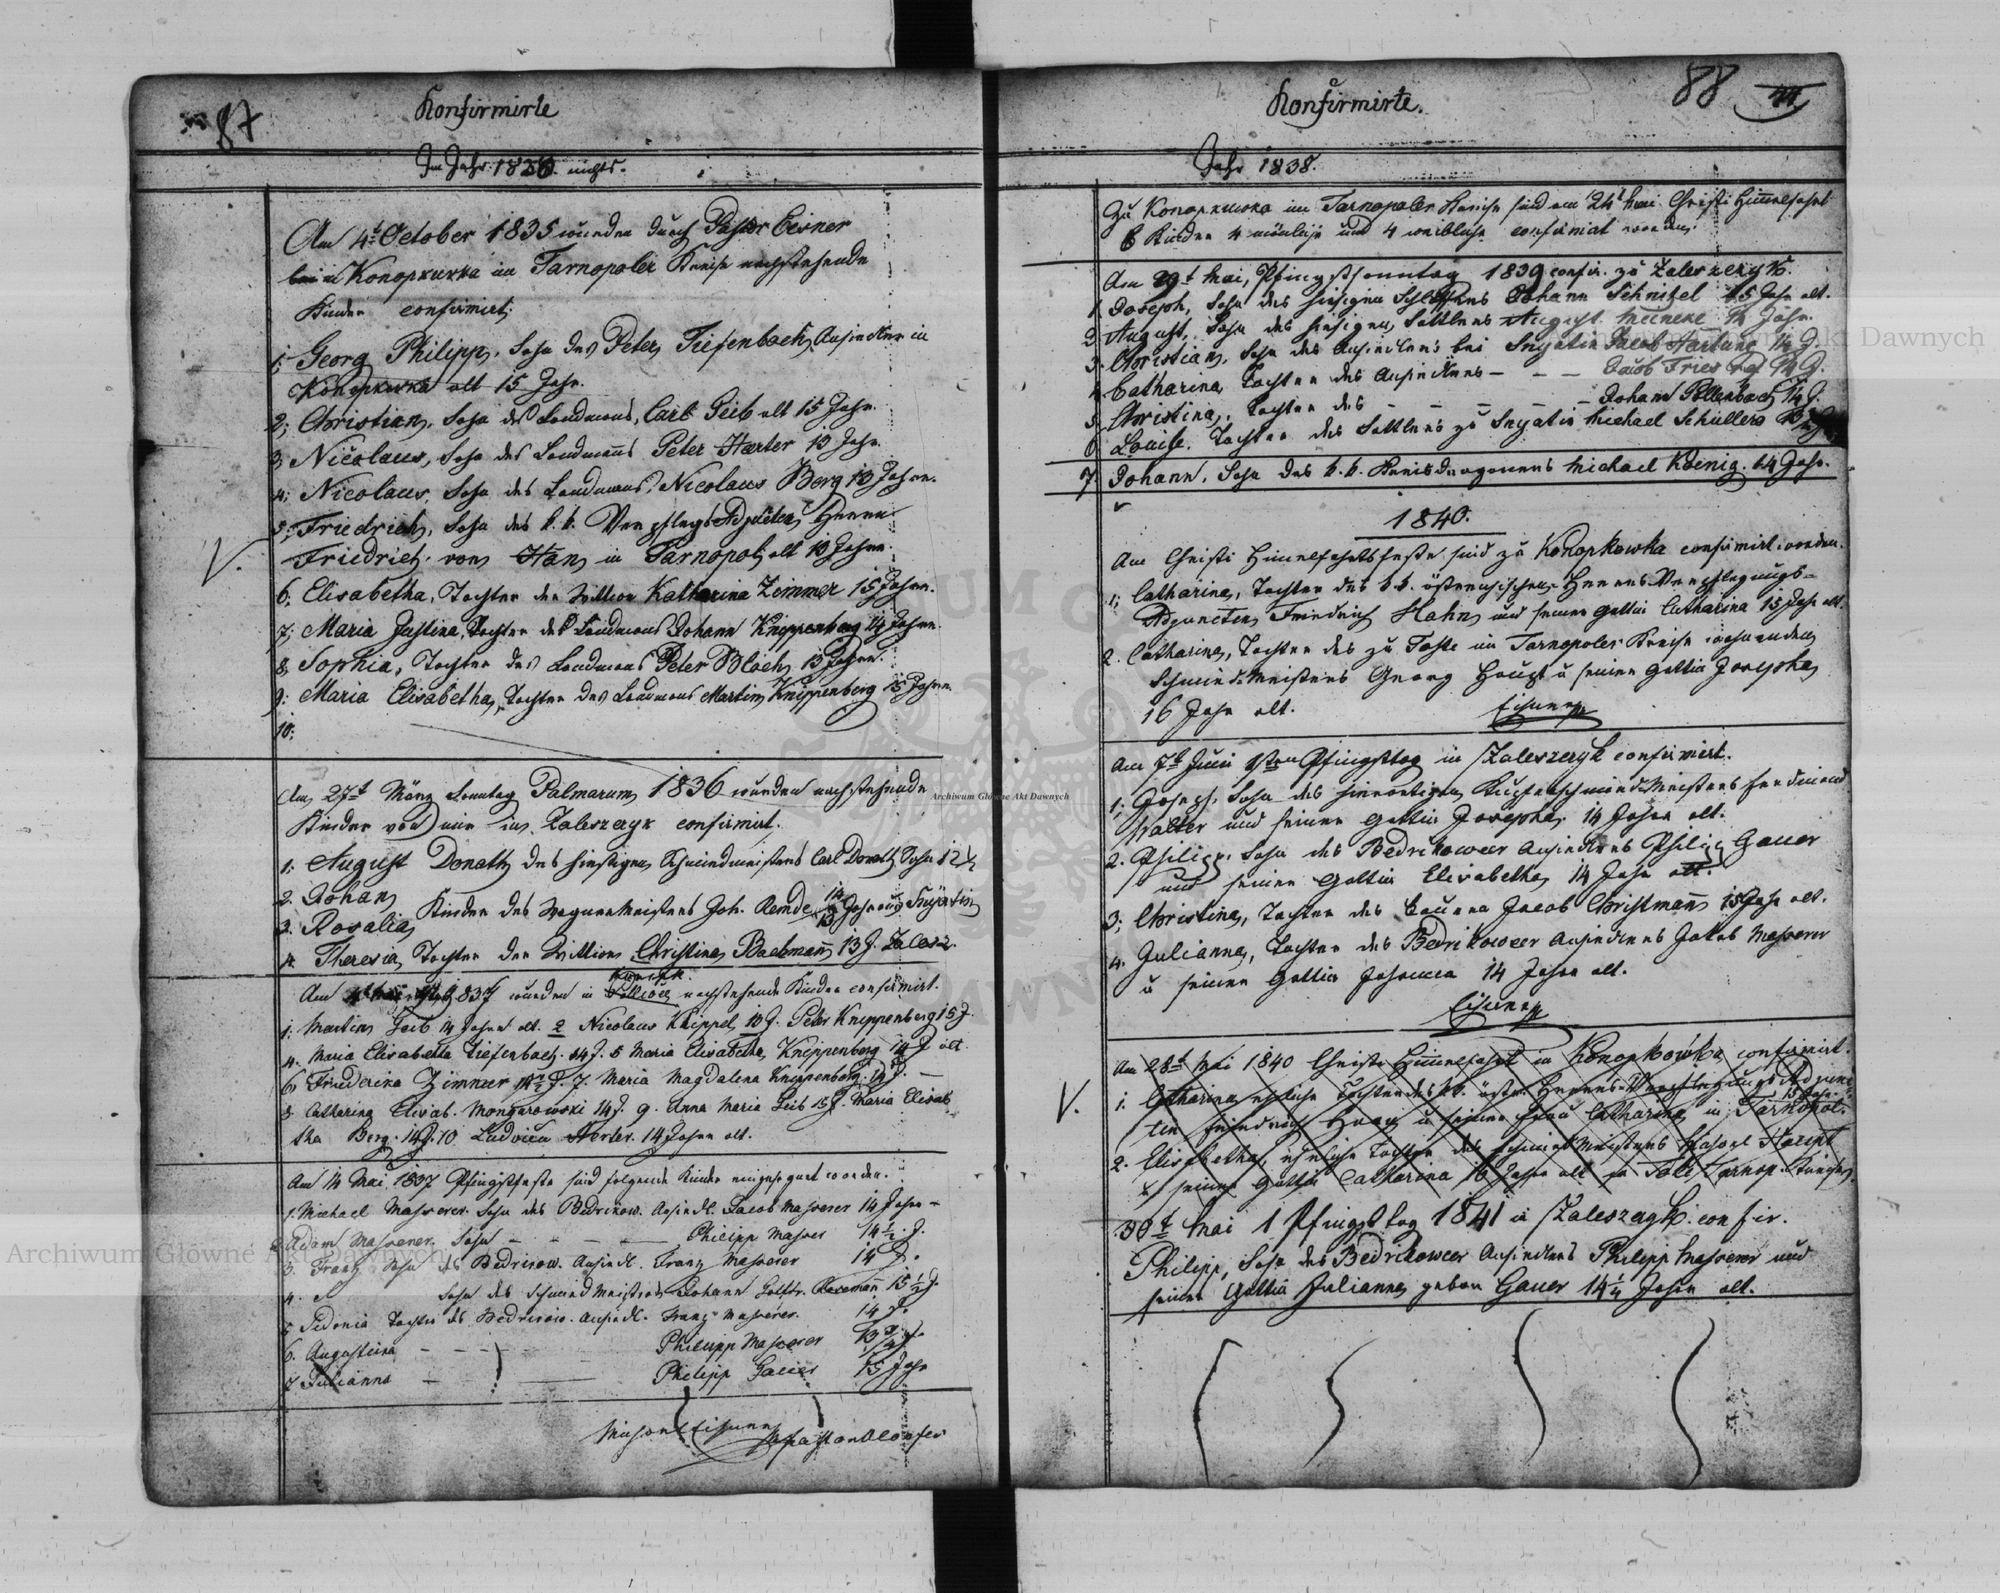 87
Konfirmirte
Im Jahr 1836 nichts.
Am 4t October 1835 wurden durch Pastor Eisner
Konopkuwka im Tarnopoler Kreise nachstehende
Kinder confirmirt:
1; Georg Philipp, Sohn des Peter Tiefenbach Ansiedler in
Konopkuwka alt 15 Jahr.
2; Christian, Sohn des Landmans, Carl Geib alt 15 Jahr.
3; Nicolaus, Sohn des Landmanns Peter Harter 13 Jahr.
4; Nicolaus, Sohn des Landmans, Nicolaus Berg 13 Jahren.
5; Friedrich, Sohn des k. k. Verpflegs Adjuncten Herrn
Friedrich von Han in Tarnopol alt 13 Jahren.
6; Elisabetha, Tochter der Wittwe Katharina Zimmer 15 Jahren.
7; Maria Justina, Tochter des Landmans Johann Knippenberg 14 Jahren.
8; Sophia, Tochter des Landmans Peter Bloch 13 Jahren.
9; Maria Elisabetha, Tochter des Landmans Martin Knippenberg 15 Jahren.
10;
Am 27t März Sonntag Palmarum 1836 wurden nachstehende
Kinder von mir in Zaleszczyk confirmirt.
1; August Donath des hiesigen Schmiedmeisters Carl Donath Sohn 12 1/2
2. Johan
3. Rosalia Kinder des Wagnermeisters Joh. Remde Jahr aus Snyatin
4. Theresia Tochter der Wittwe Christina Bachmann 13 J. Zalesz.
Am 1837 wurden in nachstehende Kinder confirmirt.
1. Martin Geib 14 Jahren alt. 2 Nicolaus Knippel 13 J. Peter Knippenberg 15 J.
4. Maria Elisabetha Tiefenbach. 14 J. 5 Maria Elisabetha, Knippenberg 14 J alt
6 Friederica Zimmer 14 1/2 J. 7. Maria Magdalena Knippenberg. 14 J.
8. Catharina Elisab. Mongarowski 14 J. 9. Anna Maria Geib 15 J. Maria Elisab
tha Berg. 14 J. 10 Ludvica Herter. 14 Jahren alt.
Am 14 Mai. 1837 Pfingstfeste sind folgende Kinder eingesegnet worden.
1. Michael Masserer. Sohn des Bedrikow. Ansiedl. Jacob Masserer 14 Jahre
2. Adam Masserer. Sohn Philipp Masser 14 1/2 J.
3. Franz Sohn des Bedrikow. Ansiedl. Franz Masserer 14 J.
4. Sohn des Schmiedmeisters Johann Gottfr. 15 1/2 J.
5 Sidonia Tochter des Bedrikow. Ansiedl. Franz Masserer. 14 J.
6. Augustina Philipp Masserer 13 3/4 J.
7 Julianna Philipp Gauer 15 Jahr
88
Konfirmirte.
Jahr 1838.
Zu Konopkuwka im Tarnopoler Kreise sind am 24t Mai Christi Himmelfahrt
8 Kinder 4 männliche und 4 weibliche confirmirt worden.
Am 29t Mai, Pfingstsonntag 1839 confir. zu Zaleszczyk.
1. Joseph, Sohn des hiesigen Schlossers Johann Schnitzel 15 Jahr alt.
2 August, Sohn des hiesigen Sattlers August Meineke 14 Jahr.
3. Christian, Sohn des Ansiedlers bei Snyatin Jacob Hartung 14 J.
4 Catharina Tochter des Ansiedlers Jacob Fries 14 J.
5. Christina, Tochter des Johann Pollenbach 14 J.
6 Louise. Tochter des Sattlers zu Snyatin Michael Schüllers
7. Johann. Sohn des k. k. Kreisdragoners Michael Koenig. 14 Jahr.
1840.
Am Christi Himmelfahrtsfeste sind zu Konopkowka confirmirt worden.
1; Catharina, Tochter des k. k. österreichischen Herrn Verpflegungs-
Adjuncten Friedrich Hahn und seiner Gattin Catharina 15 Jahr alt.
2. Catharina, Tochter des zu Toste im Tarnopoler Kreise wohnenden
Schmied-Meisters Georg Haupt u seiner Gattin Josepha
16 Jahr alt. Eisner
Am 7t Juni 1sten Pfingsttag in Zaleszczyk confirmirt.
1; Joseph, Sohn des hierortigen Kupferschmied Meisters Ferdinand
Walter und seiner Gattin Josepha 14 Jahre alt.
2. Philipp. Sohn des Bedrikowcer Ansiedlers Philipp Gauer
und seiner Gattin Elisabetha, 14 Jahr alt.
3; Christina, Tochter des Bauern Jacob Christmann 15 Jahr alt.
4. Julianna, Tochter des Bedrikowcer Ansiedlers Jakob Masserer
u seiner Gattin Johanna 14 Jahre alt.
Eisner
Am 28t Mai 1840 Christi Himmelfahrt in Konopkówka confirmirt.
1. Catharina eheliche Tochter des k. k. östr. Herrn Verpflegungs Adjunc
ten Friedrich Haan u seiner Frau Catharina in Tarnopol.
2. Elisabetha, eheliche Tochter des Schmiedmeisters Haupt
u seiner Gattin Catharina 16 Jahre alt
30t Mai 1 Pfingsttag 1841 in Zaleszczyk. confir.
Philipp, Sohn des Bedrikowcer Ansiedlers Philipp Masserer und
seiner Gattin Julianna geborn Gauer 14 1/4 Jahre alt.
Archiwum Główne Akt Dawnych